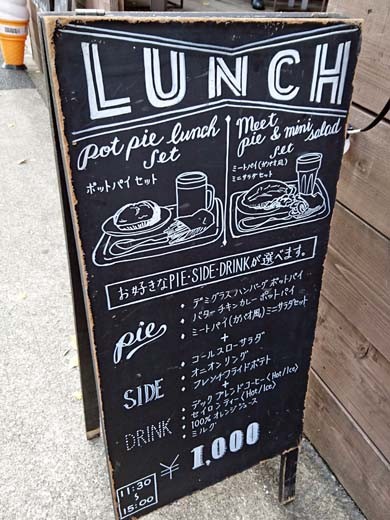 LUNCH
pot pie lunch set
ポットパイ セット
Meet pie & mini salad set
ミートパイ(ガパオ風)
ミニサラダセット
お好きなPIE・SIDE・DRINKが選べます。
pie
・デミグラスハンバーグポットパイ
・バターチキンカレーポットパイ
・ミートパイ(ガパオ風)ミニサラダセット
+
SIDE
・コールスローサラダ
・オニオンリング
・フレンチフライドポテト
+
DRINK
・デックブレンドコーヒー(Hot/Ice)
・セイロンティー(Hot/Ice)
・100%オレンジジュース
・ミルク
¥1,000
11:30
〜
15:00